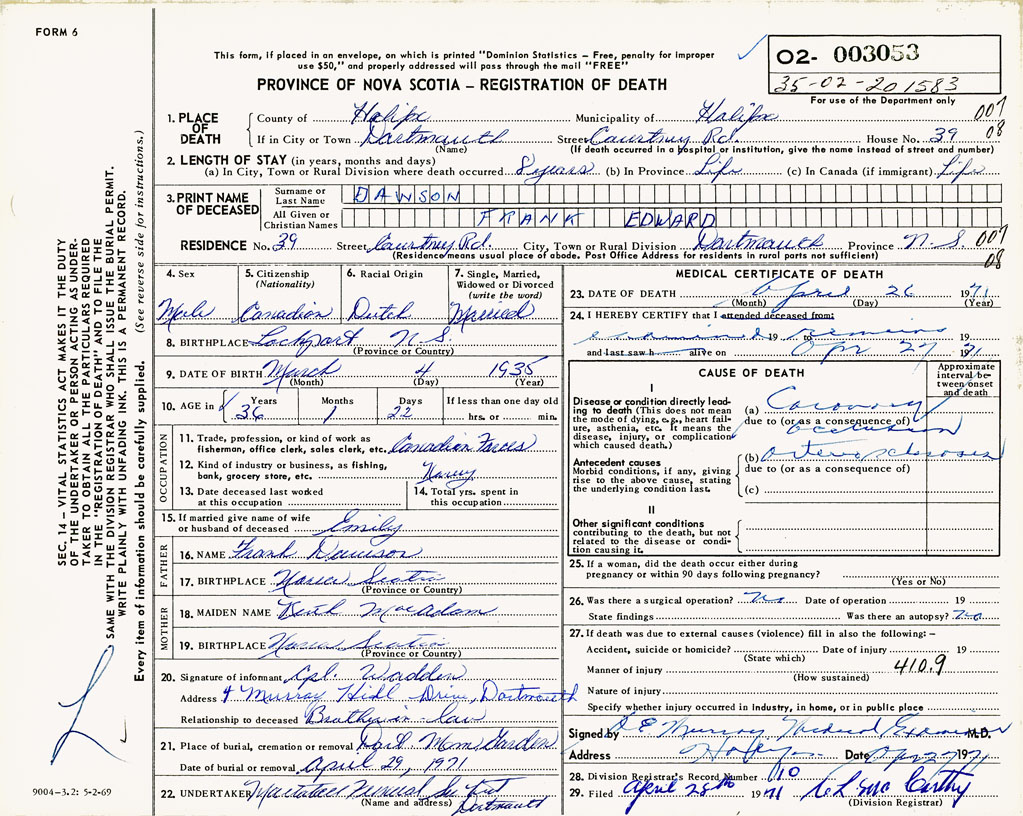 FORM 6
This form, if placed in an envelope, on which is printed "Dominion Statistics – Free, penalty for improper
use $50," and properly addressed will pass through the mail "FREE"
PROVINCE OF NOVA SCOTIA – REGISTRATION OF DEATH
02- 003053
35-02-201583
For use of the Department only
SEC. 14 – VITAL STATISTICS ACT MAKES IT THE DUTY
OF THE UNDERTAKER OR PERSON ACTING AS UNDER-
TAKER TO OBTAIN ALL THE PARTICULARS REQUIRED
IN THE "REGISTRATION OF DEATH" AND TO FILE THE
SAME WITH THE DIVISION REGISTRAR WHO SHALL ISSUE THE BURIAL PERMIT.
WRITE PLAINLY WITH UNFADING INK. THIS IS A PERMANENT RECORD.
Every item of information should be carefully supplied. (See reverse side for instructions.)
1. PLACE OF DEATH
County of Halifx Municipality of Halifx 007
If in City or Town Dartmouth Street Courtney Rd. House No. 39 08
(Name) (If death occurred in a hospital or institution, give the name instead of street and number)
2. LENGTH OF STAY (in years, months and days)
(a) In City, Town or Rural Division where death occurred 8 years (b) In Province Life (c) In Canada (if immigrant) Life
3. PRINT NAME OF DECEASED
Surname or Last Name DAWSON
All Given or Christian Names FRANK EDWARD
RESIDENCE No. 39 Street Courtney Rd. City, Town or Rural Division Dartmouth Province N.S. 007
(Residence means usual place of abode. Post Office Address for residents in rural parts not sufficient) 08
4. Sex 5. Citizenship (Nationality) 6. Racial Origin 7. Single, Married, Widowed or Divorced (write the word)
Male Canadian Dutch Married
8. BIRTHPLACE Lockport N.S.
(Province or Country)
9. DATE OF BIRTH March 4 1935
(Month) (Day) (Year)
10. AGE in Years Months Days If less than one day old
36 1 22 hrs. or min.
OCCUPATION
11. Trade, profession, or kind of work as
fisherman, office clerk, sales clerk, etc. Canadian Forces
12. Kind of industry or business, as fishing,
bank, grocery store, etc. Navy
13. Date deceased last worked at this occupation
14. Total yrs. spent in this occupation
15. If married give name of wife
or husband of deceased Emily
FATHER
16. NAME Frank Dawson
17. BIRTHPLACE Nova Scotia
(Province or Country)
MOTHER
18. MAIDEN NAME MacAdam
19. BIRTHPLACE Nova Scotia
(Province or Country)
20. Signature of informant Cpl. Wadden
Address 4 Murray Hill Drive, Dartmouth
Relationship to deceased Brother in law
21. Place of burial, cremation or removal Dart Mem Garden
Date of burial or removal April 29, 1971
22. UNDERTAKER
(Name and address) Dartmouth
9004–3.2: 5-2-69
MEDICAL CERTIFICATE OF DEATH
23. DATE OF DEATH April 26 1971
(Month) (Day) (Year)
24. I HEREBY CERTIFY that I attended deceased from:
examined 19 to remains
and last saw h alive on Apr 27 1971
CAUSE OF DEATH
Approximate interval between onset and death
I
Disease or condition directly leading to death (This does not mean the mode of dying, e.g., heart failure, asthenia, etc. It means the disease, injury, or complication which caused death.)
(a) Coronary
due to (or as a consequence of)
occlusion
Antecedent causes
Morbid conditions, if any, giving rise to the above cause, stating the underlying condition last.
(b) arteriosclerosis
due to (or as a consequence of)
(c)
II
Other significant conditions
contributing to the death, but not related to the disease or condition causing it.
25. If a woman, did the death occur either during
pregnancy or within 90 days following pregnancy?
(Yes or No)
26. Was there a surgical operation? No Date of operation 19
State findings Was there an autopsy? No
27. If death was due to external causes (violence) fill in also the following: –
Accident, suicide or homicide? Date of injury 19
(State which)
Manner of injury 410.9
(How sustained)
Nature of injury
Specify whether injury occurred in industry, in home, or in public place
Signed by Murray Medical Examiner M.D.
Address Halifax Date Apr 27 1971
28. Division Registrar's Record Number 110
29. Filed April 28th 1971 McCarthy
(Division Registrar)